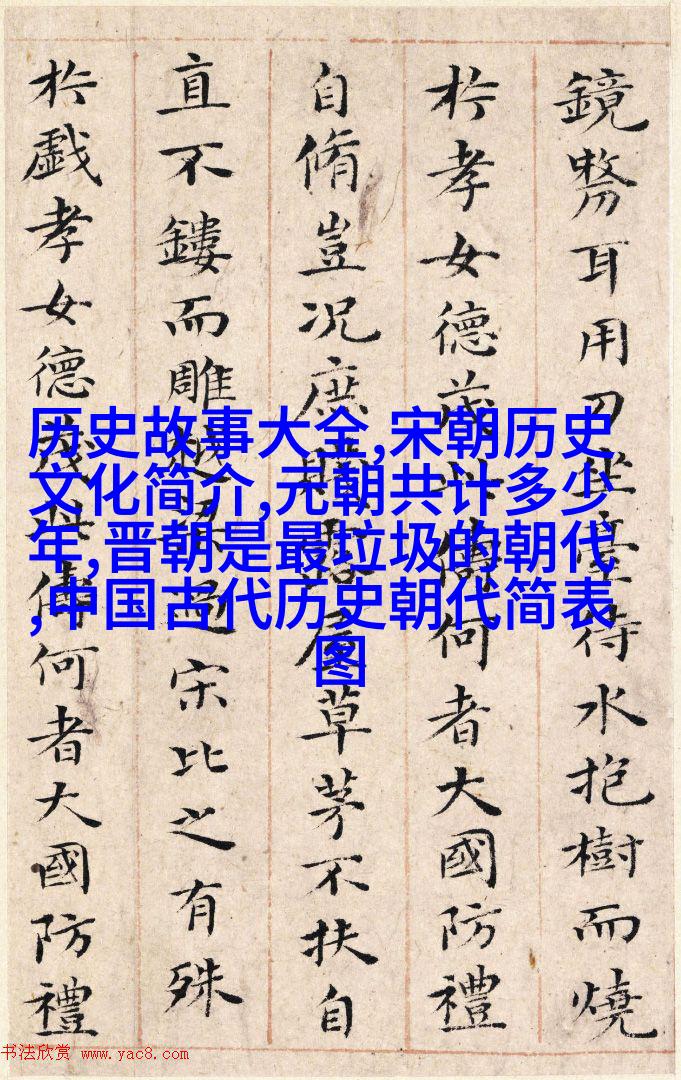 历史故事大全,宋朝历史
文化简介,元朝共计多少
年,晋朝是最垃圾的朝代
,中国古代历史朝代简表
图
鏡剺耳用刀坐臺待水抱樹而燒
於孝女德茂此儔何者大國防禮
自脩豈況庶賤露屋草茅不扶自
直不鏤而雕越梁過宋比之有殊
於戲孝女德茂此儔何者大國防禮
书法欣赏 www.yac8.com